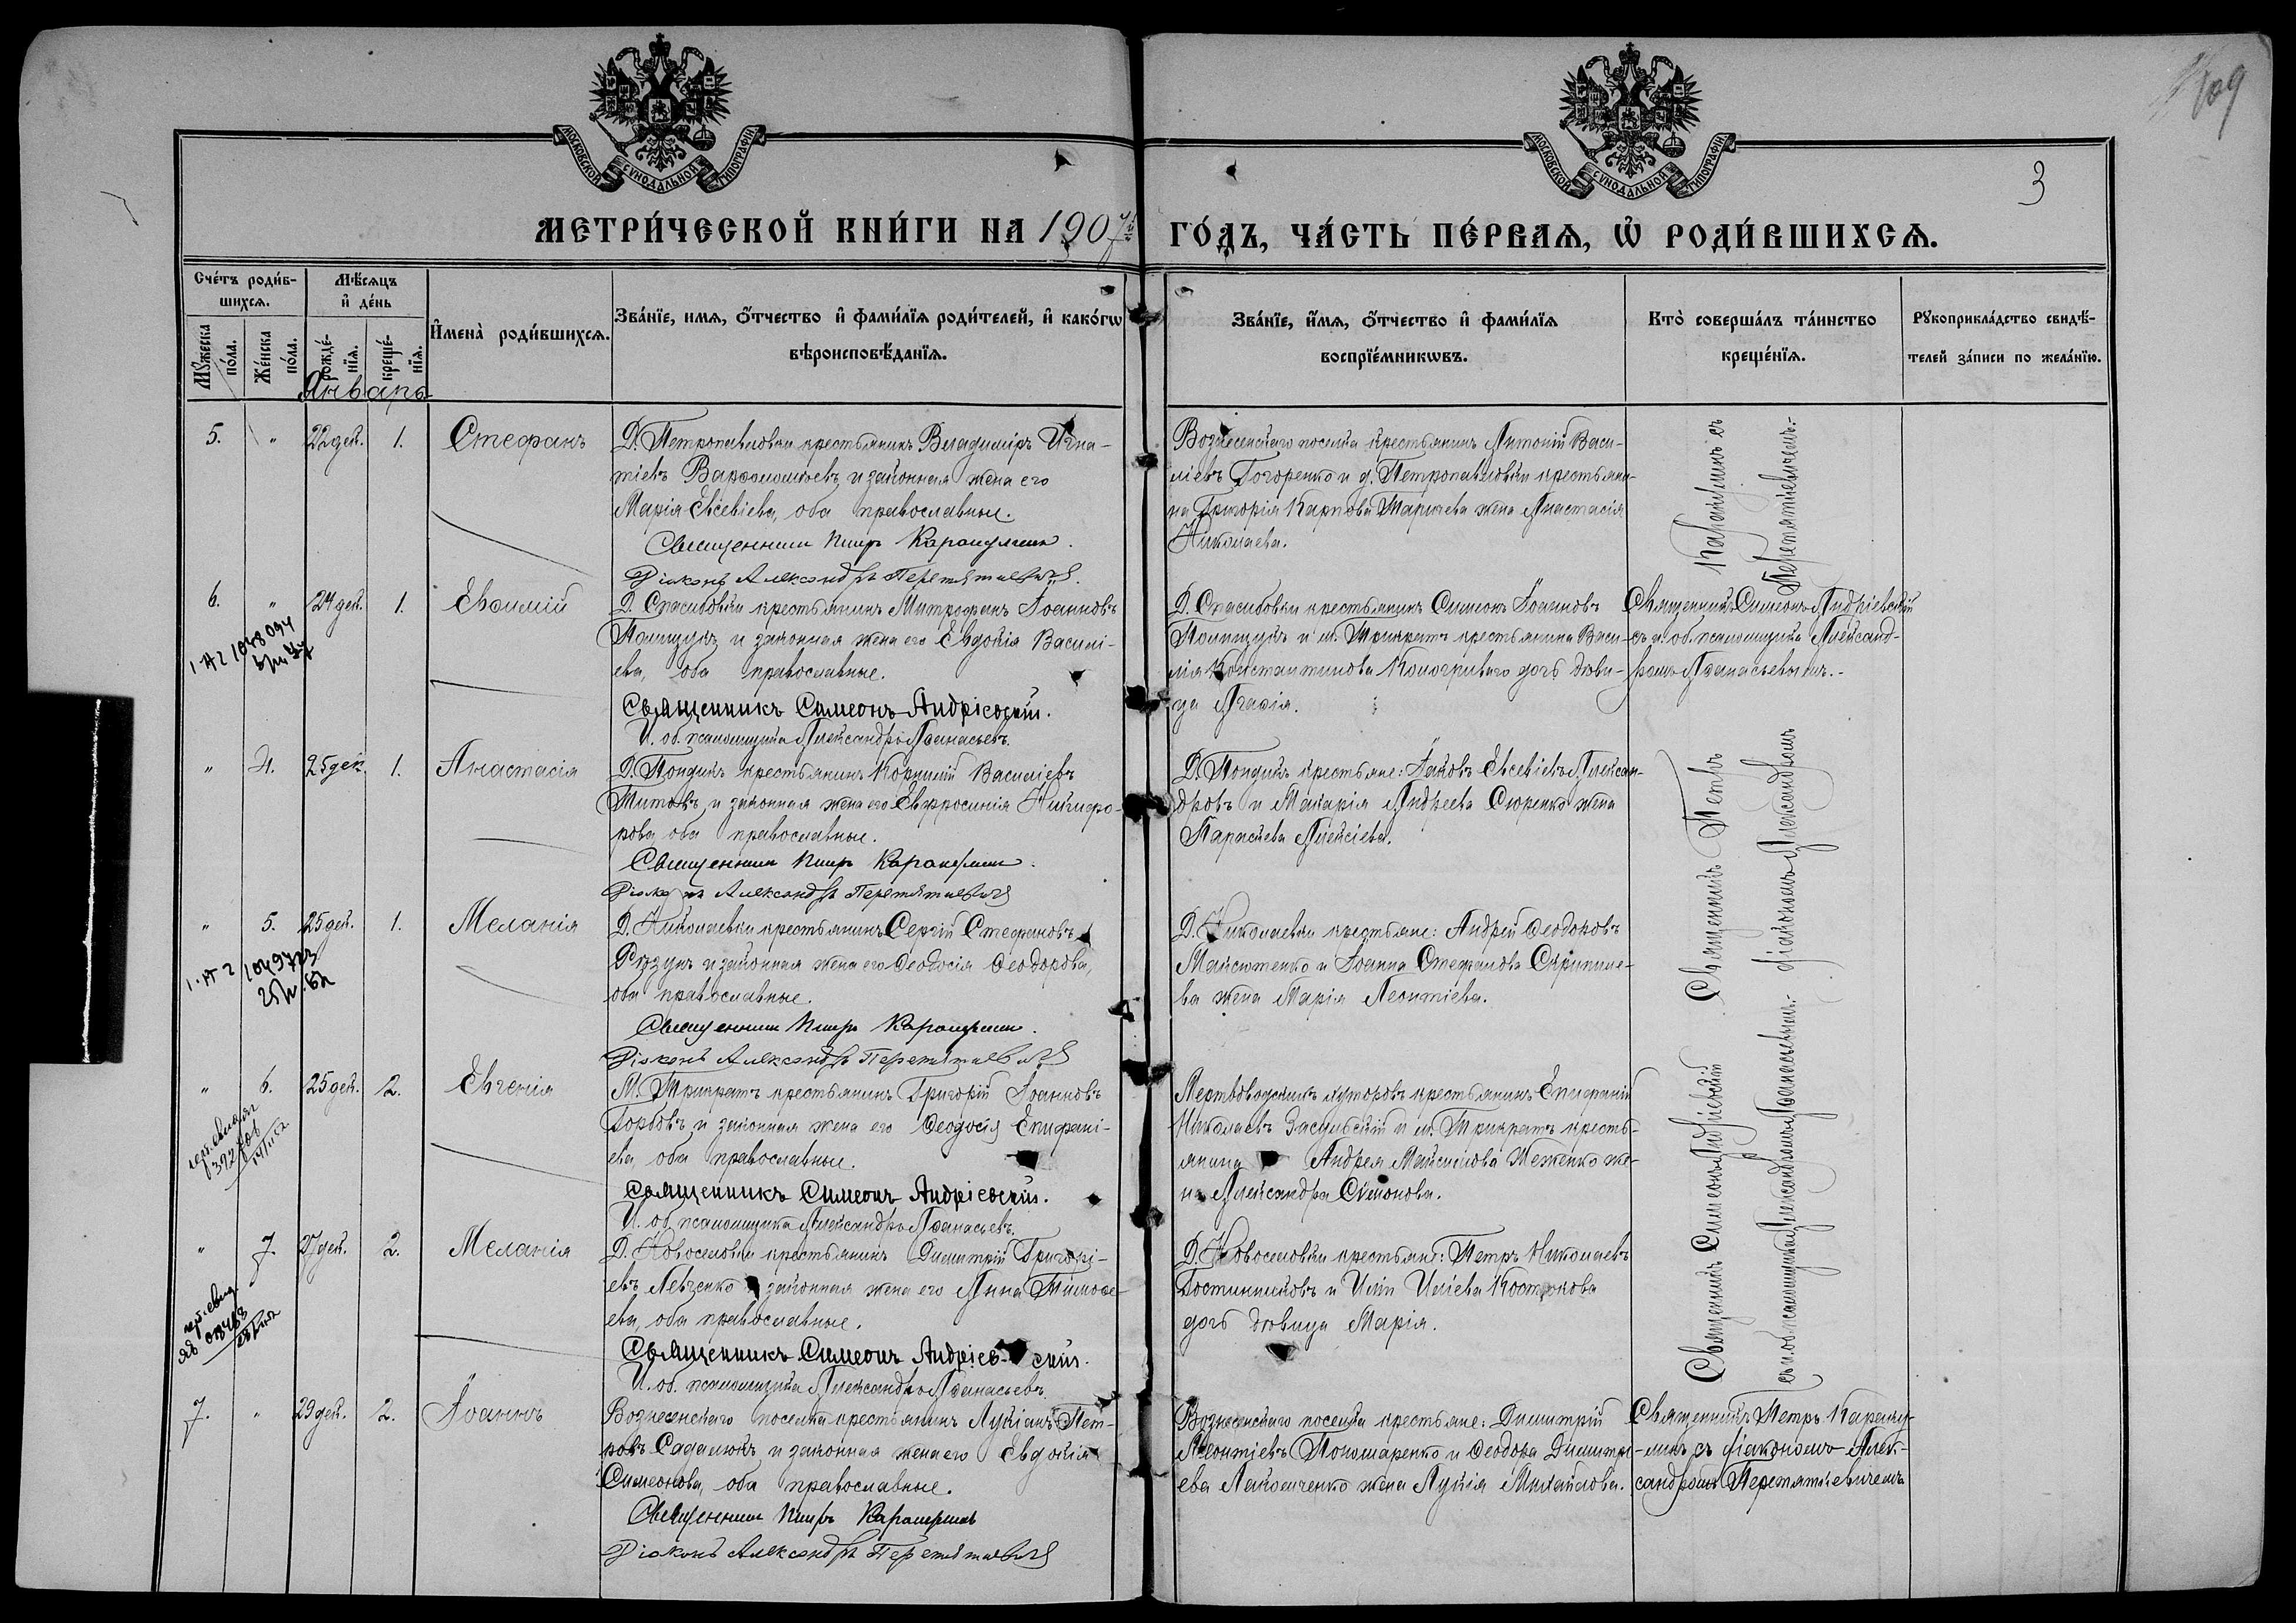 109
3
МОСКОВСКОЙ СѴНОДАЛЬНОЙ ТИПОГРАФІИ.
МОСКОВСКОЙ СѴНОДАЛЬНОЙ ТИПОГРАФІИ.
МЕТРИ́ЧЕСКОЙ КНИ́ГИ НА 1907й ГО́ДЪ, ЧА́СТЬ ПЕ́РВАѦ, Ѡ҆ РОДИ́ВШИХСѦ.
Сче́тъ роди́в-
шихсѧ.
Мꙋ́жеска по́ла.
Же́нска по́ла.
Мѣ́сѧцъ
и҆ де́нь
рожде́-нїѧ.
креще́-нїѧ.
И҆мена̀ роди́вшихсѧ.
Зва́нїе, имѧ, ѻ҆́тчество и҆ фами́лїѧ роди́телей, и҆ како́гѡ
вѣроисповѣ́данїѧ.
Зва́нїе, и҆́мѧ, ѻ҆́тчество и҆ фами́лїѧ
воспрїе́мникѡвъ.
Кто̀ соверша́лъ та́инство
креще́нїѧ.
Рꙋкоприкла́дство свидѣ́-
телей за́писи по жела́нїю.
Январь
5. " 22 дек. 1. Стефанъ
Д. Петропавловки крестьянинъ Владиміръ Игна-
тіевъ Варѳоломѣевъ и законная жена его
Марія Евсевіева, оба православные.
Священникъ Петръ Карануминъ.
Діаконъ Александръ Перетяткевичъ.
Вознесенскаго поселка крестьянинъ Антоній Васи-
ліевъ Гогоренко и д. Петропавловки крестьяни-
на Григорія Карпова жена Анастасія
Николаева.
6. " 24 дек. 1. Евѳимій
1048094
Д. Спасибовки крестьянинъ Митрофанъ Іоанновъ
Полищукъ и законная жена его Евдокія Васили-
ева, оба православные.
Священникъ Симеонъ Андріевскій.
И. об. псаломщика Александръ Аѳанасьевъ.
Д. Спасибовки крестьянинъ Симеонъ Іоанновъ
Полищукъ и м. Трикратъ крестьянина Васи-
лія Константинова дочь дѣви-
ца Агаѳія.
Священникъ Симеонъ Андріевскій
съ и. об. псаломщика Александ-
ромъ Аѳанасьевымъ.-
" 4. 25 дек. 1. Анастасія
Д. Пондикъ крестьянинъ Корнилій Василіевъ
Титовъ и законная жена его Евфросинія Никифо-
рова, оба православные.
Священникъ Петръ Карануминъ.
Діаконъ Александръ Перетяткевичъ
Д. Пондикъ крестьяне: Іаковъ Евсевіевъ Алексан-
дровъ и Макарія Андреева Сюренко жена
Параскева Алексіева.
" 5. 25 дек. 1. Меланія
Д. Николаевки крестьянинъ Сергій Стефановъ
Рязунъ и законная жена его Ѳеодосія Ѳеодорова,
оба православные.
Священникъ Петръ Карануминъ.
Діаконъ Александръ Перетяткевичъ
Д. Николаевки крестьяне: Андрей Ѳеодоровъ
Максютенко и Іоанна Стефанова
жена Марія Леонтіева.
" 6. 25 дек. 2. Евгенія
М. Трикратъ крестьянинъ Григорій Іоанновъ
Горбовъ и законная жена его Ѳеодосія Епифані-
ева, оба православные.
Священникъ Симеонъ Андріевскій.
И. об. псаломщика Александръ Аѳанасьевъ.
Мертвоводскихъ хуторовъ крестьянинъ Епифаній
Николаевъ Засульскій и м. Трикратъ кресть-
янина Андрея Максимова же-
на Александра Симонова.
" 7. 27 дек. 2. Меланія
Д. Новоселовки крестьянинъ Димитрій Григорі-
евъ Левченко и законная жена его Анна Тимоѳе-
ева, оба православные.
Священникъ Симеонъ Андріевскій.
И. об. псаломщика Александръ Аѳанасьевъ.
Д. Новоселовки крестьяне: Петръ Николаевъ
Гостинниковъ и Иліи Иліева Кострокова
дочь дѣвица Марія.
7. " 29 дек. 2. Іоаннъ
Вознесенскаго поселка крестьянинъ Лукіанъ Пет-
ровъ Садалюкъ и законная жена его Евдокія
Симеонова, оба православные.
Священникъ Петръ Карануминъ
Діаконъ Александръ Перетяткевичъ
Вознесенскаго поселка крестьяне: Димитрій
Леонтіевъ Пономаренко и Ѳеодора Димитрі-
ева жена Лукія Михайлова.
Священникъ Петръ Карану-
минъ съ діакономъ Алек-
сандромъ Перетяткевичемъ
Священникъ Петръ Карануминъ съ
діакономъ Александромъ Перетяткевичемъ.
Священникъ Симеонъ Андріевскій
съ и. об. псаломщика Александромъ Аѳанасьевымъ.